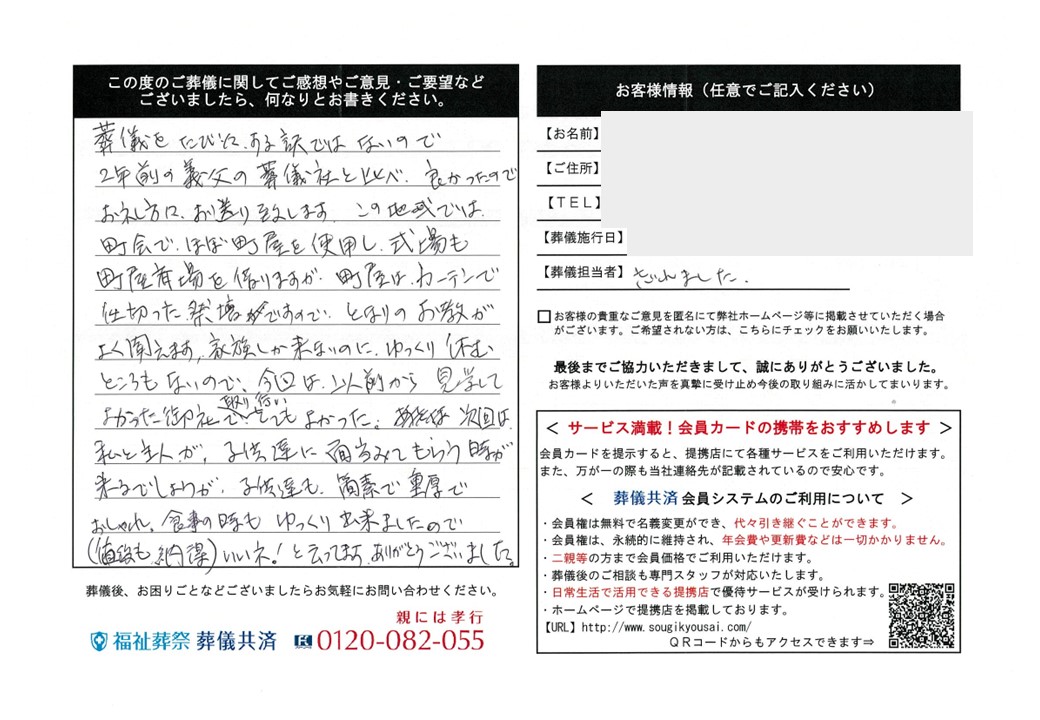 この度のご葬儀に関してご感想やご意見・ご要望など
ございましたら、何なりとお書きください。
葬儀をたびたびある訳ではないので
2年前の義父の葬儀社と比べ、良かったので
お礼方々、お送り致します。この地域では、
町会で、ほぼ町屋を使用し、式場も
町屋斎場を借りますが、町屋は、カーテンで
仕切った祭壇ですので、となりのお教が
よく聞えます。家族しか来ないのに、ゆっくり休む
ところもないので、今回は、以前から見学して
よかった御社で取り行いとてもよかった。次回は、
私と主人が、子供達に面当みてもらう時が
来るでしょうが、子供達も、簡素で重厚で
おしゃれ。食事の時もゆっくり出来ましたので
(値段も納得)いいネ!と云ってます。ありがとうございました。
葬儀後、お困りごとなどございましたらお気軽にお問い合わせください。
親には孝行
福祉葬祭 葬儀共済 0120-082-055
お客様情報（任意でご記入ください）
【お名前】
【ご住所】
【TEL】
【葬儀施行日】
【葬儀担当者】
お客様の貴重なご意見を匿名にて弊社ホームページ等に掲載させていただく場合
がございます。ご希望されない方は、こちらにチェックをお願いいたします。
最後までご協力いただきまして、誠にありがとうございました。
お客様よりいただいた声を真摯に受け止め今後の取り組みに活かしてまいります。
＜ サービス満載！会員カードの携帯をおすすめします ＞
会員カードを提示すると、提携店にて各種サービスをご利用いただけます。
また、万が一の際も当社連絡先が記載されているので安心です。
＜ 葬儀共済 会員システムのご利用について ＞
・会員権は無料で名義変更ができ、代々引き継ぐことができます。
・会員権は、永続的に維持され、年会費や更新費などは一切かかりません。
・二親等の方まで会員価格でご利用いただけます。
・葬儀後のご相談も専門スタッフが対応いたします。
・日常生活で活用できる提携店で優待サービスが受けられます。
・ホームページで提携店を掲載しております。
【URL】http://www.sougikyousai.com/
ＱＲコードからもアクセスできます⇒